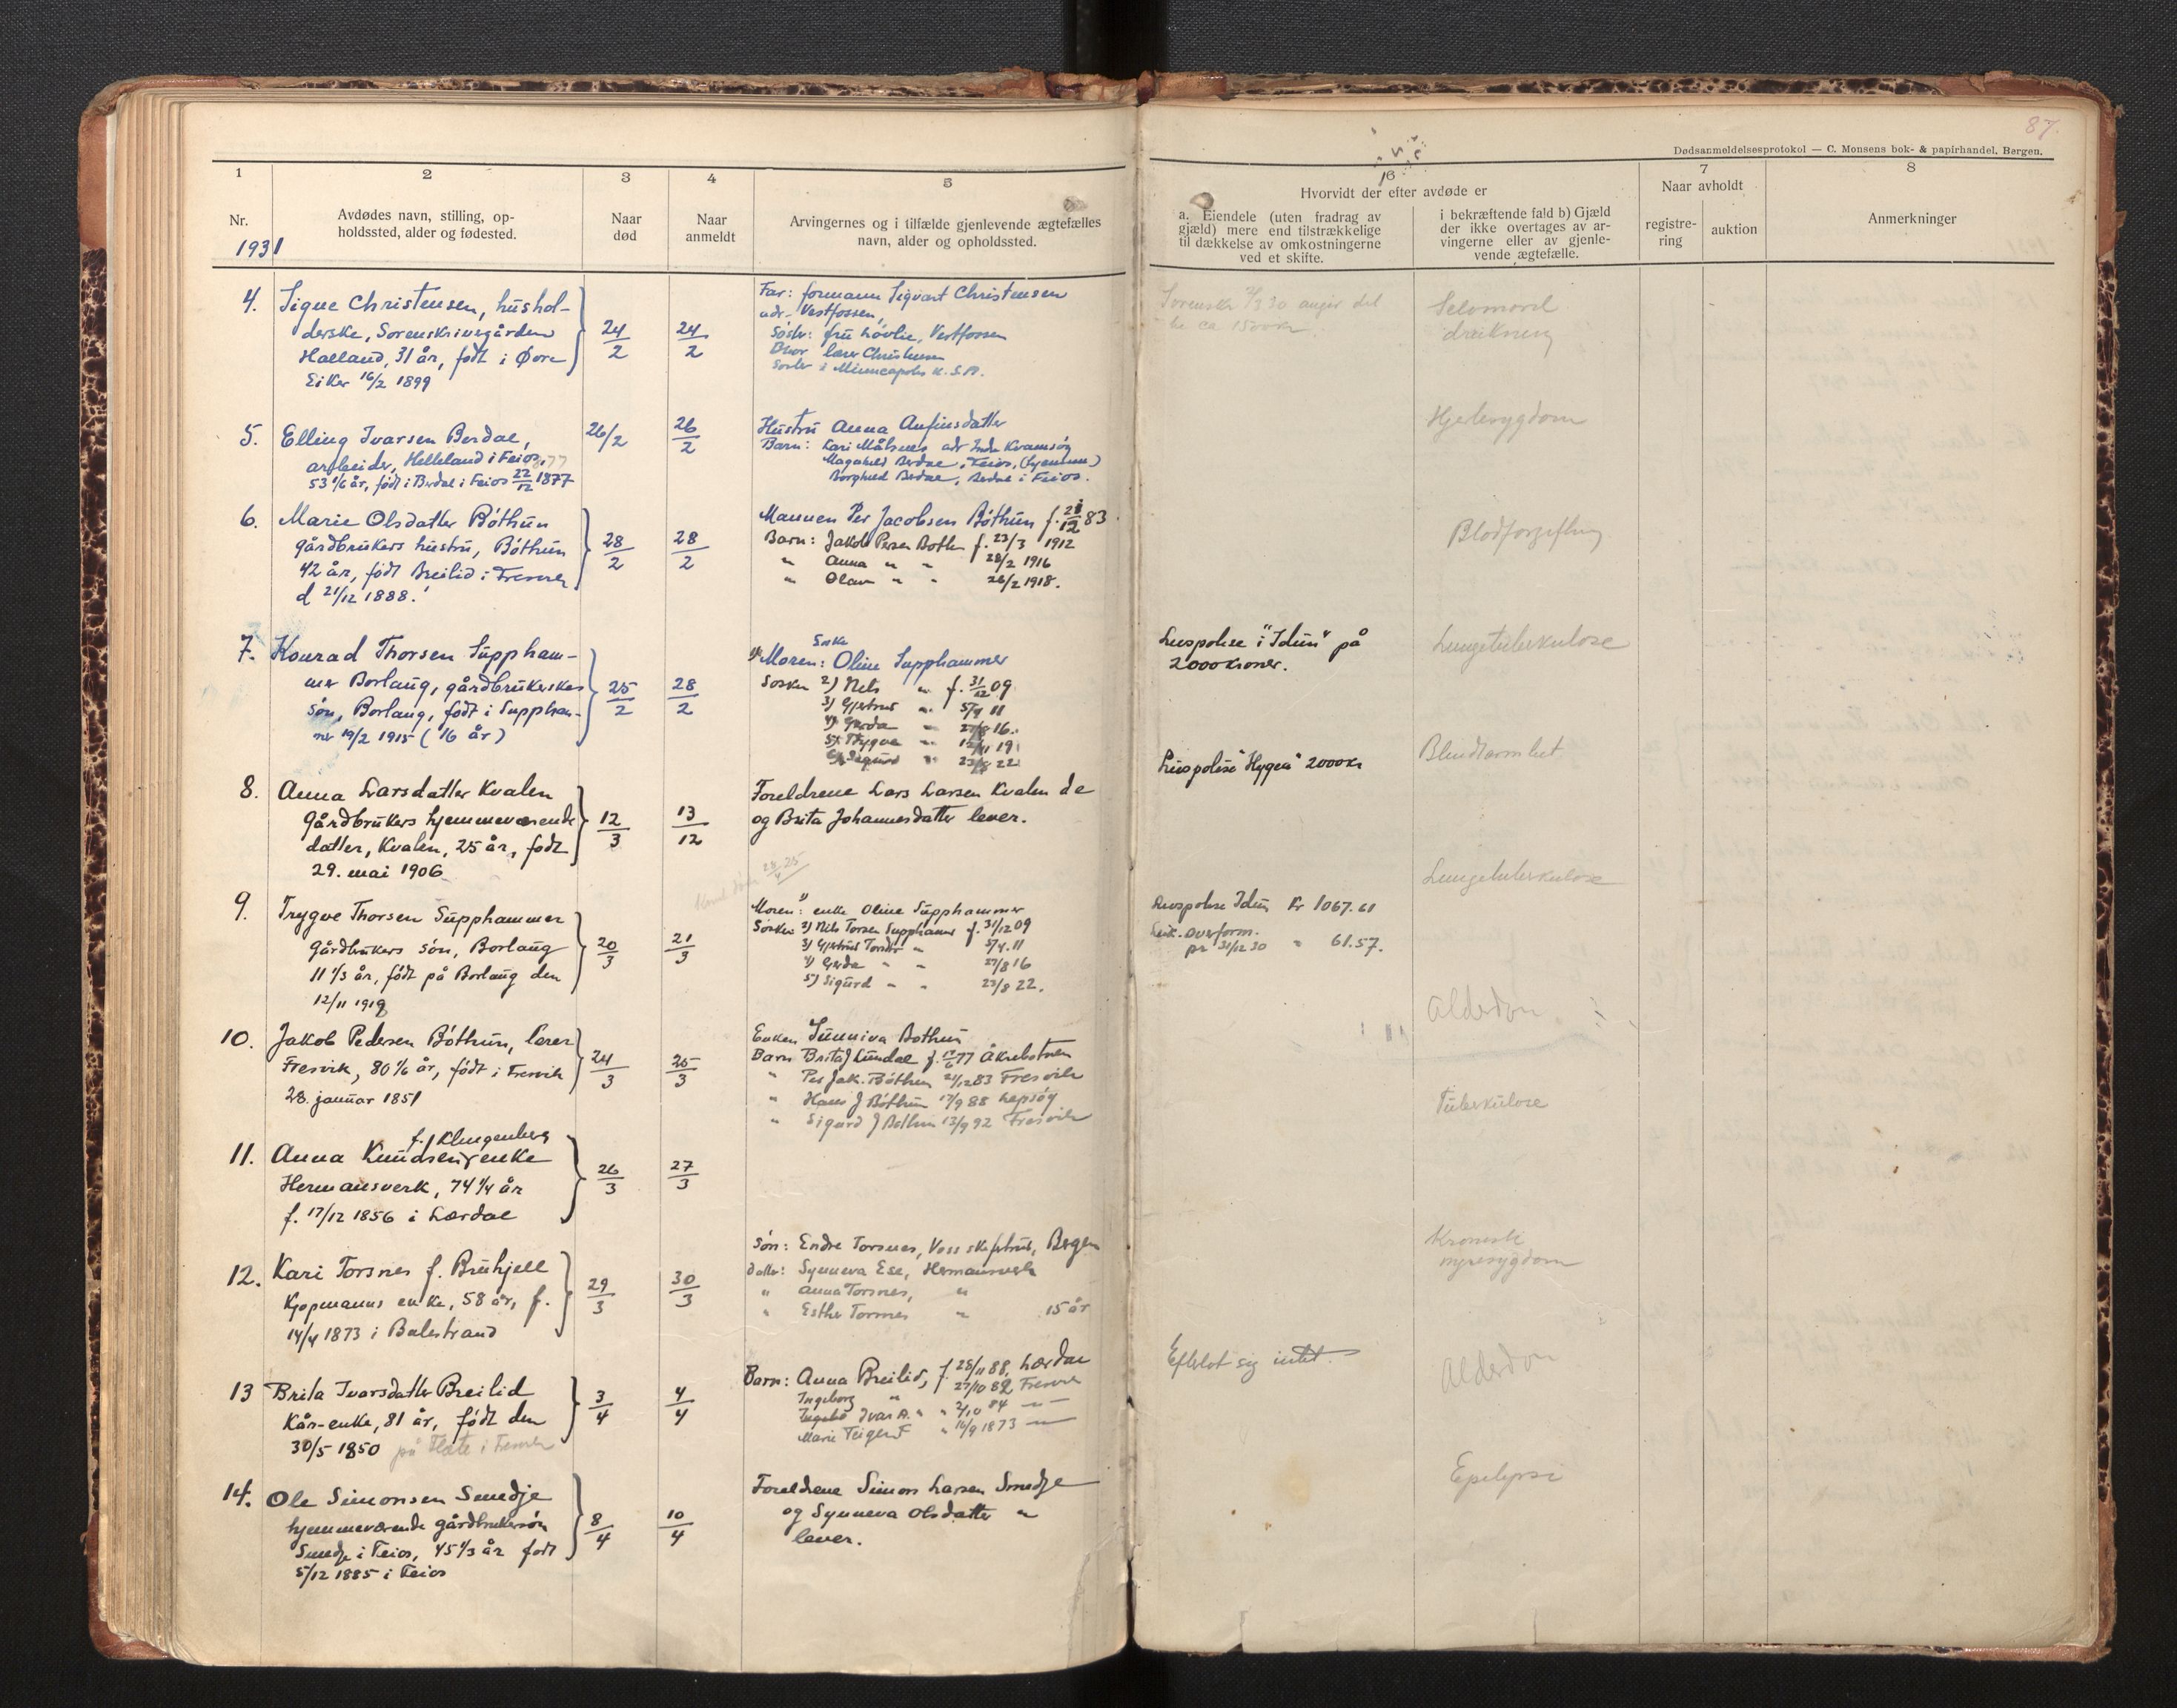 87.
Dødsanmeldelsesprotokol — C. Monsens bok- & papirhandel, Bergen.
1
2
3
4
5
6
7
8
Nr.
1931
Avdødes navn, stilling, op-
holdssted, alder og fødested.
Naar
død
Naar
anmeldt
Arvingernes og i tilfælde gjenlevende ægtefælles
navn, alder og opholdssted.
Hvorvidt der efter avdøde er
a. Eiendele (uten fradrag av
gjæld) mere end tilstrækkelige
til dækkelse av omkostningerne
ved et skifte.
i bekræftende fald b) Gjæld
der ikke overtages av ar-
vingerne eller av gjenle-
vende ægtefælle.
Naar avholdt
registre-
ring
auktion
Anmerkninger
4. Signe Christensen, hushol-
derske, Sorenskrivergården
Halland, 31 år, født i Øvre
Eiker 16/2 1899
24/2
24/2
Far: formann Sigvart Christensen
adr. Vestfossen,
Søster: fru Løvlie, Vestfossen
Bror lærer Christensen
Søster i Minneapolis U.S.A.
angir det
ca 1500 kr
Selvmord
drukning
5. Elling Ivarsen Berdal,
arbeider, Helleland i Feios,
53 1/6 år, født i Berdal i Feios 22/12 1877
26/2
26/2
Hustru Anna Anfinsdatter
Barn: Kari Målsnes adr Indre Kvamsøy
Magnhild Berdal, Feios, (hjemme)
Borghild Berdal, Berdal i Feios.
Hjertesygdom
6. Marie Olsdatter Bøthun
gårdbrukers hustru, Bøthun
42 år, født Breilid i Fresvik
d 21/12 1888.
28/2
28/2
Mannen Per Jacobsen Bøthun f. 21/12 83.
Barn: Jakob Persen Bothun f. 23/3 1912
" Anna " " 28/2 1916
" Olav " " 26/2 1918.
Blodforgiftning
7. Konrad Thorsen Suppham-
mer Borlaug, gårdbrukerskes
søn, Borlaug, født i Suppham-
mer 19/2 1915 (16 år)
25/2
28/2
Moren: Oline Supphammer
Søsken 2) Nils " f. 31/12 09
3) Gjertrud " 5/4 11
4) Gerda " 27/8 16.
5) Trygve " 12/11 19
6) Sigurd " 23/8 22
Livspolise i "Idun" på
2000 kroner.
Lungetuberkulose
8. Anna Larsdatter Kvalen
gårdbrukers hjemmeværende
datter, Kvalen, 25 år, født
29. mai 1906
12/3
13/12
Foreldrene Lars Larsen Kvalen de
og Brita Johannesdatter lever.
Livspolise "Hygea" 2000 kr
Blindtarmbet
9. Trygve Thorsen Supphammer
gårdbrukers søn, Borlaug
11 1/3 år, født på Borlaug den
12/11 1919
20/3
21/3
Moren: enke Oline Supphammer
Søsken 2) Nils Torsen Supphammer f. 31/12 09
3) Gjertrud Torsdtr " 5/4.11
4) Gerda " " 27/8 16
5) Sigurd " " 23/8 22.
Livspolise Idun kr 1067.61
overform.
pr 31/12 30 " 61.57.
Lungetuberkulose
10. Jakob Pedersen Bøthun, lærer
Fresvik, 80 1/6 år, født i Fresvik
28. januar 1851
24/3
25/3
Enken Sunniva Bothun
Barn Brita J Lundal 77 Åkrebotnen
" Per Jak. Bøthun 21/12 83 Fresvik
" Hans J Bøthun 17/9 88 Lepsøy
" Sigurd J Bøthun 13/9 92 Fresvik
Alderdom
11. Anna Knudsen, enke
f. Klingenberg
Hermansverk, 74 1/4 år
f. 17/12 1856 i Lærdal
26/3
27/3
Tuberkulose
12. Kari Torsnes f. Bruhjell
Kjøpmanns enke, 58 år, f.
14/4 1873 i Balestrand
29/3
30/3
Søn: Endre Torsnes, Bergen
datter: Synneva Ese, Hermansverk
" Anna Torsnes, "
" Esther Torsnes " 15 år
Kronisk
nyresygdom
13 Brita Ivarsdatter Breilid
Kår-enke, 81 år, født den
30/5 1850 på Flete i Fresvik
3/4
4/4
Barn: Anna Breilid, f. 28/11 88, Lærdal
Ingeborg " 27/10 82 Fresvik
Ivar A. " " 2/10 84 — " —
Marie Teigen f " 16/9 1873 — " —
Efterlot sig intet.
Alderdom
14. Ole Simonsen Smedje
hjemmeværende gårdbrukersøn
Smedje i Feios, 45 1/3 år født
5/12 1885 i Feios
8/4
10/4
Foreldrene Simon Larsen Smedje
og Synneva Olsdatter "
lever.
Epilepsi